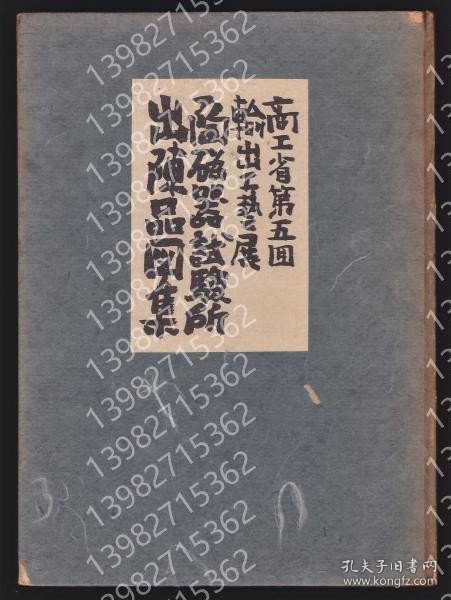 商工省第五回
輸出工藝展
陶磁器試驗所
出陳品図集
13982715362
13982715362
13982715362
13982715362
13982715362
13982715362
13982715362
13982715362
13982715362
13982715362
13982715362
13982715362
孔夫子旧书网
www.kongfz.com